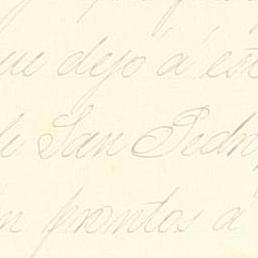 ue dejo á est
de San Pedro,
n prontos á